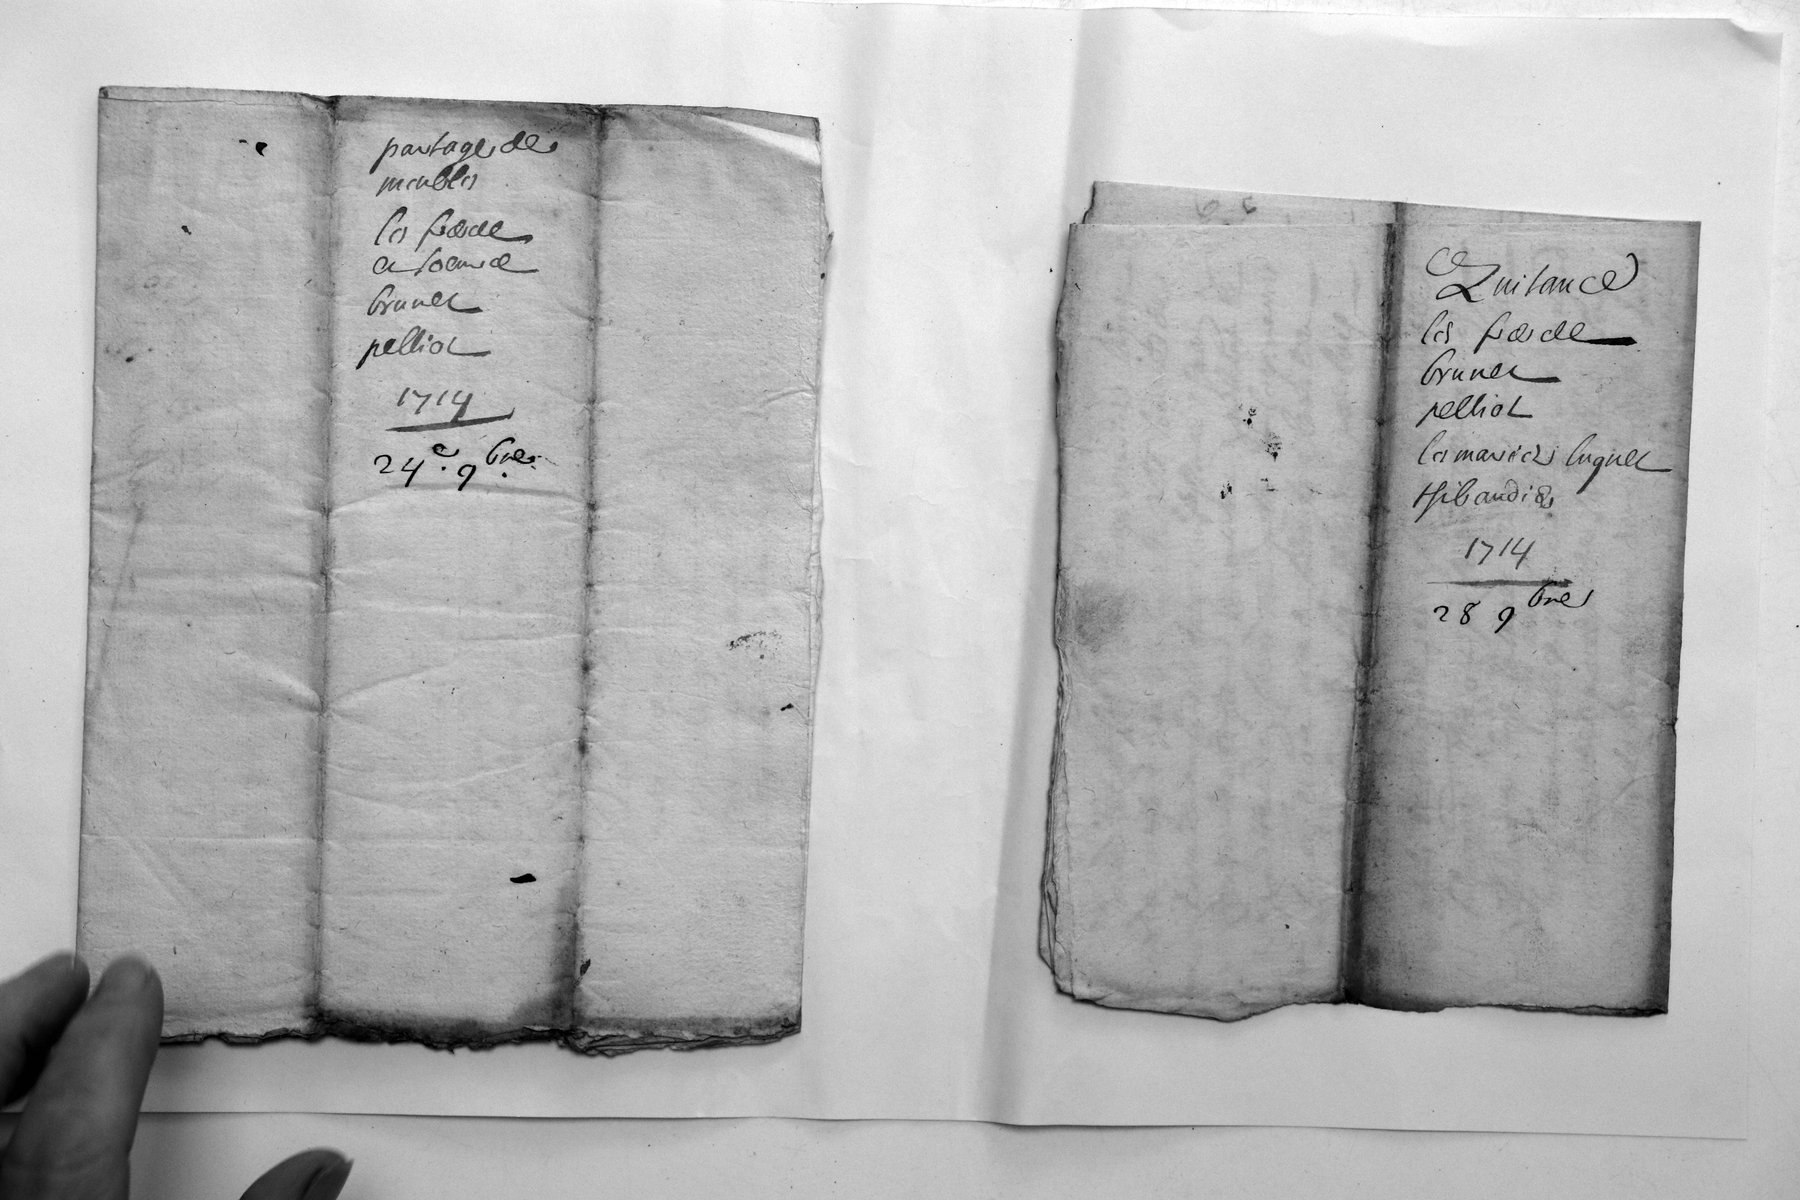 partage de
meubles
les frerde
et soeurd
brunet
pelliot
1714
24e. 9bre.
Ce
Quitance
les frerde
brunet
pelliot
les mariés luquet
thibaudier
1714
28 9bre